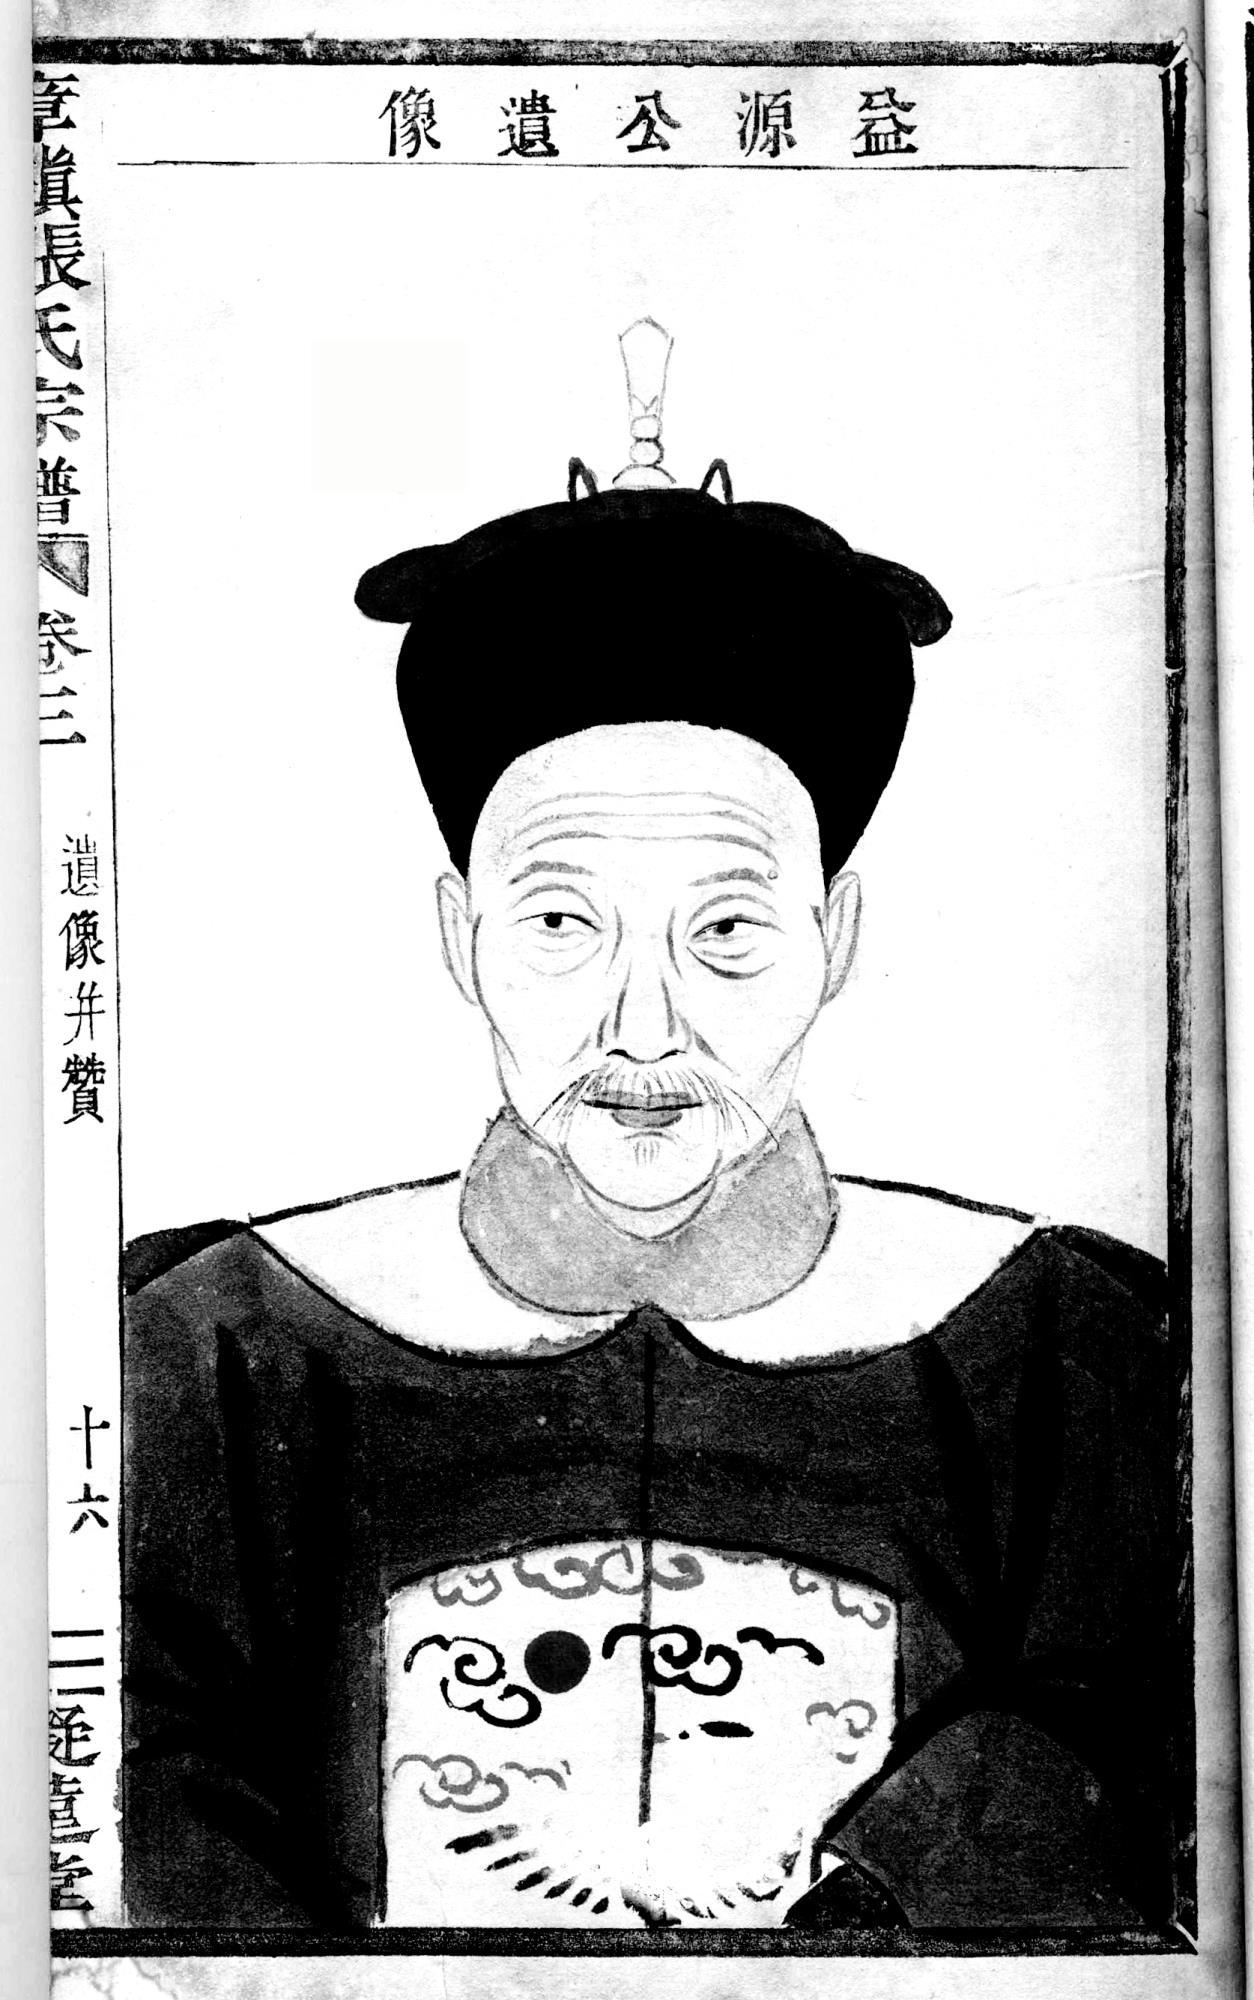 益源公遺像
章鎮張氏宗譜
卷三
遺像并贊
十六
堂